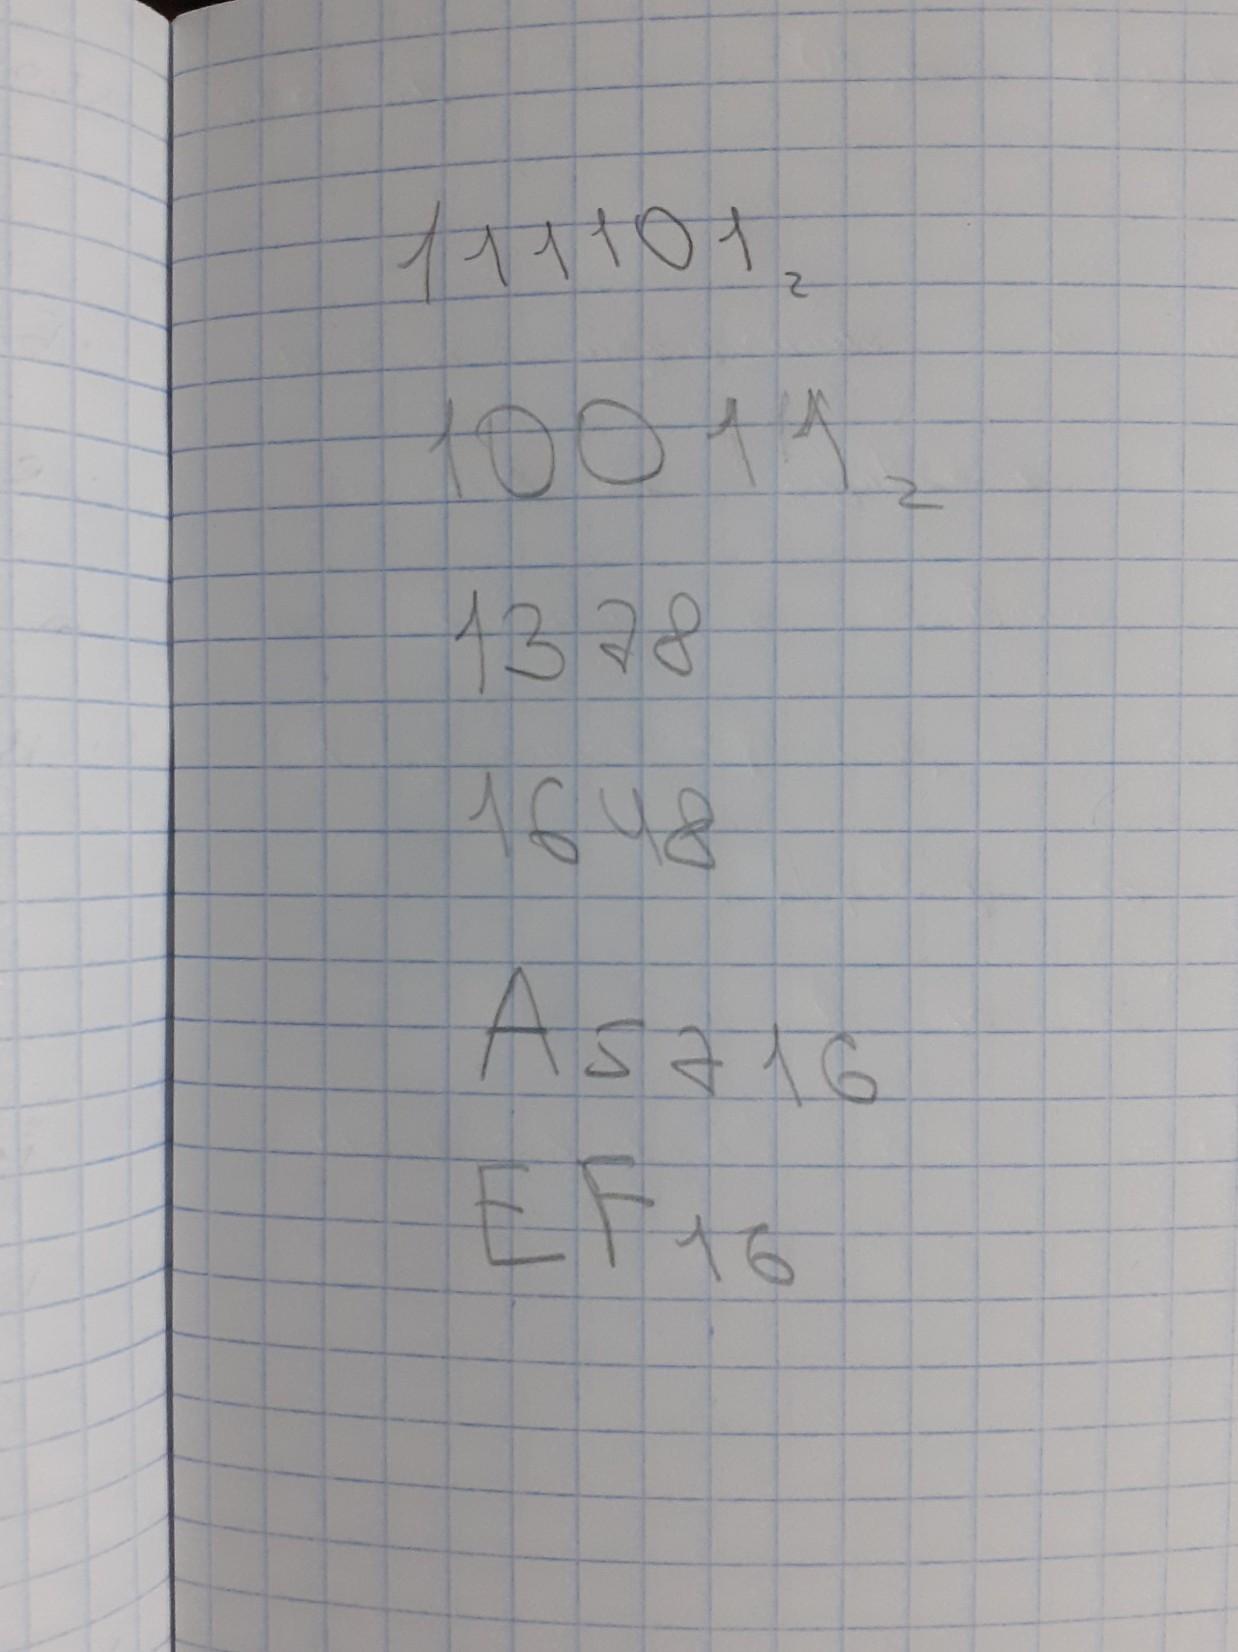 111101₂
10011₂
1378
1648
A5716
EF16